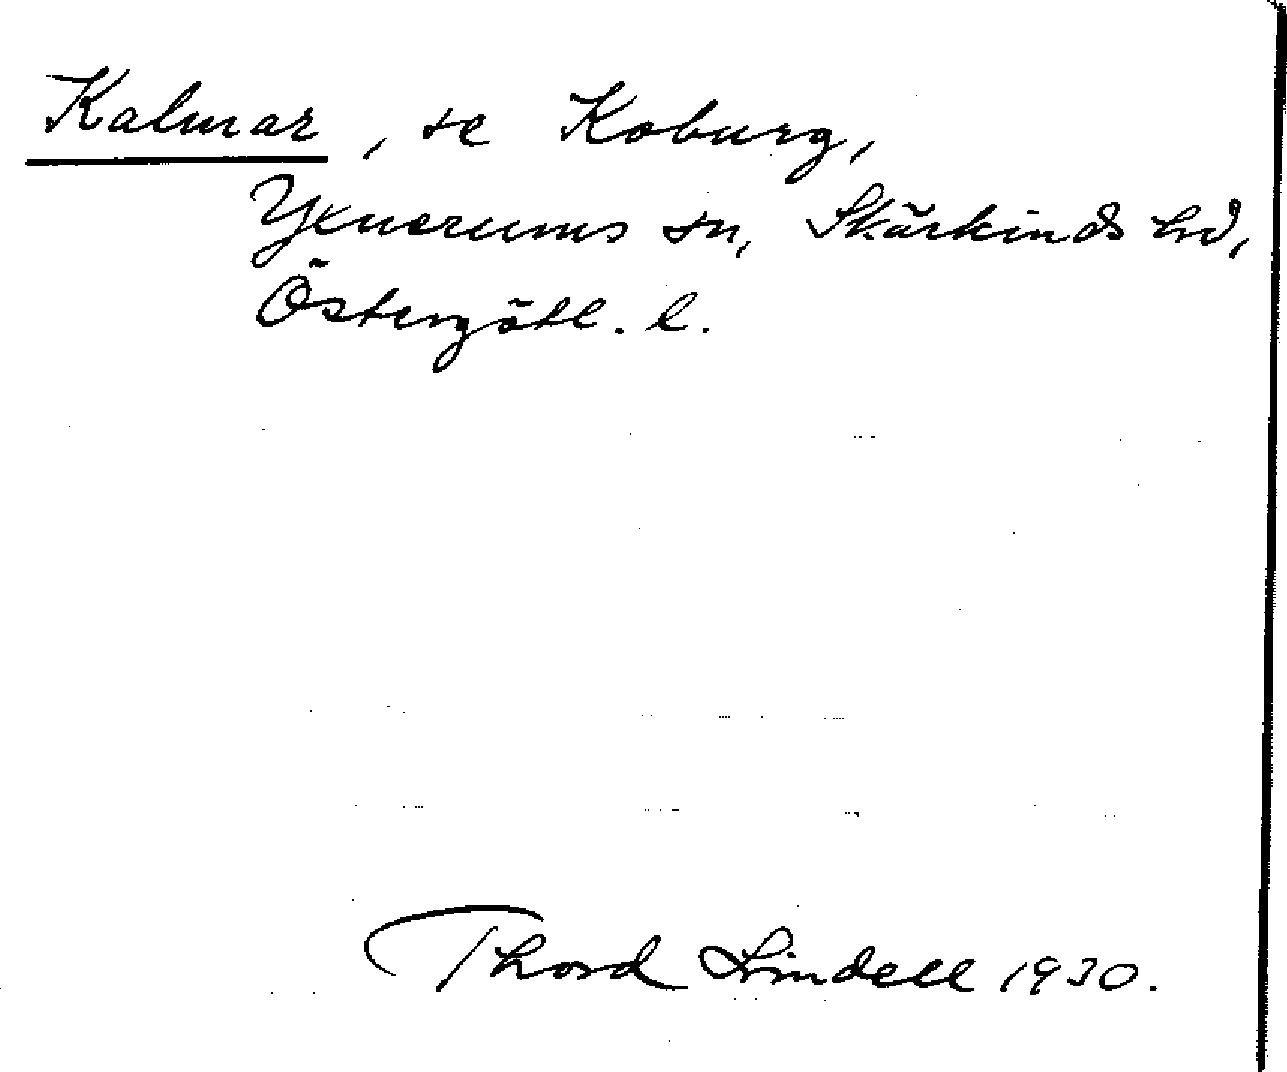 Kalmar, se Koburg,
Yxnerums sn, Skärkinds hd,
Östergötl. l.
Thord Lindell 1930.